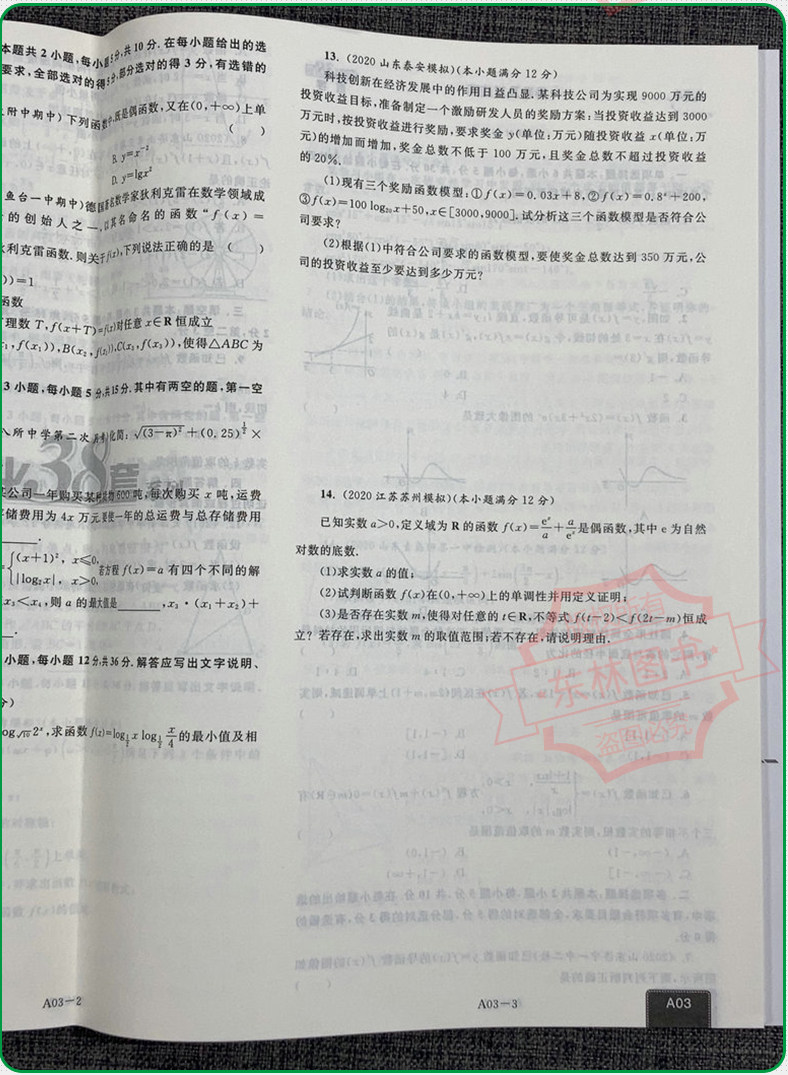 本题共 2 小题,每小题 5 分,共 10 分. 在每小题给出的选
要求,全部选对的得 5 分,部分选对的得 3 分,有选错的
附中期中) 下列函数中,既是偶函数,又在(0,+∞)上单
( )
B. y=x⁻²
D. y=lgx²
鱼台一中期中)德国著名数学家狄利克雷在数学领域成
的创始人之一,以其名命名的函数“f(x)=
利克雷函数. 则关于f(x),下列说法正确的是 ( )
))=1
函数
理数 T, f(x+T)=f(x)对任意 x∈R 恒成立
, f(x₁)), B(x₂, f(x₂)), C(x₃, f(x₃)), 使得△ABC 为
3 小题,每小题 5 分,共15分. 其中有两空的题,第一空
八所中学第二次联考)化简: √(3-π)² + (0.25)^{1/2} ×
38套
公司一年购买某种货物600吨,每次购买 x 吨,运费
储费用为 4x 万元.要使一年的总运费与总存储费用
.
{(x+1)², x≤0,
|log₂x|, x>0. 若方程 f(x)=a 有四个不同的解
x₃<x₄, 则 a 的最大值是______, x₃·(x₁+x₂)+
小题,每小题 12 分,共36分. 解答应写出文字说明、
分)
2ˣ, 求函数 f(x)=log_{1/2} x log_{1/2} x/4 的最小值及相
A03－2
13. (2020 山东泰安模拟)(本小题满分 12 分)
科技创新在经济发展中的作用日益凸显. 某科技公司为实现 9000 万元的
投资收益目标,准备制定一个激励研发人员的奖励方案:当投资收益达到 3000
万元时,按投资收益进行奖励,要求奖金 y(单位:万元)随投资收益 x(单位:万
元)的增加而增加,奖金总数不低于 100 万元,且奖金总数不超过投资收益
的 20%.
(1)现有三个奖励函数模型:①f(x)=0.03x+8,②f(x)=0.8ˣ+200,
③f(x)=100 log₂₀x+50,x∈[3000,9000]. 试分析这三个函数模型是否符合公
司要求?
(2)根据(1)中符合公司要求的函数模型,要使奖金总数达到 350 万元,公
司的投资收益至少要达到多少万元?
14. (2020 江苏苏州模拟)(本小题满分 12 分)
已知实数 a>0,定义域为 R 的函数 f(x)=eˣ/a+a/eˣ是偶函数,其中 e 为自然
对数的底数.
(1)求实数 a 的值;
(2)试判断函数 f(x)在(0,+∞)上的单调性并用定义证明;
(3)是否存在实数 m,使得对任意的 t∈R,不等式 f(t－2)<f(2t－m)恒成
立? 若存在,求出实数 m 的取值范围;若不存在,请说明理由.
版权所有
东林图书
盗图必究
A03－3
A03